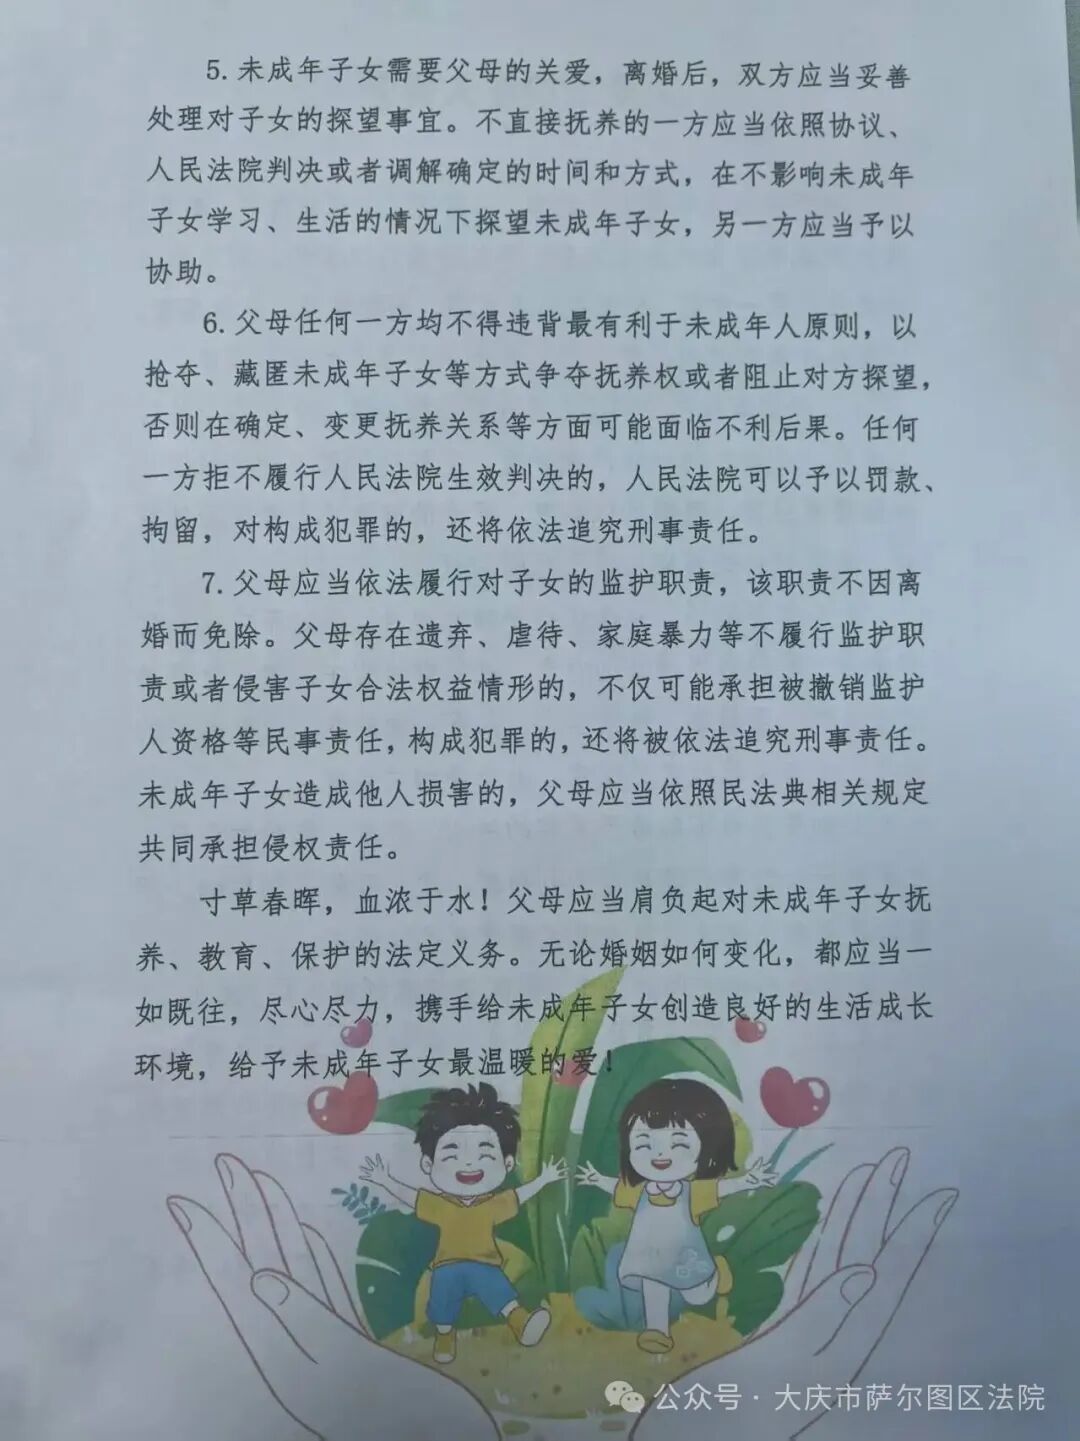 5. 未成年子女需要父母的关爱，离婚后，双方应当妥善
处理对子女的探望事宜。不直接抚养的一方应当依照协议、
人民法院判决或者调解确定的时间和方式，在不影响未成年
子女学习、生活的情况下探望未成年子女，另一方应当予以
协助。
6. 父母任何一方均不得违背最有利于未成年人原则，以
抢夺、藏匿未成年子女等方式争夺抚养权或者阻止对方探望，
否则在确定、变更抚养关系等方面可能面临不利后果。任何
一方拒不履行人民法院生效判决的，人民法院可以予以罚款、
拘留，对构成犯罪的，还将依法追究刑事责任。
7. 父母应当依法履行对子女的监护职责，该职责不因离
婚而免除。父母存在遗弃、虐待、家庭暴力等不履行监护职
责或者侵害子女合法权益情形的，不仅可能承担被撤销监护
人资格等民事责任，构成犯罪的，还将被依法追究刑事责任。
未成年子女造成他人损害的，父母应当依照民法典相关规定
共同承担侵权责任。
寸草春晖，血浓于水！父母应当肩负起对未成年子女抚
养、教育、保护的法定义务。无论婚姻如何变化，都应当一
如既往，尽心尽力，携手给未成年子女创造良好的生活成长
环境，给予未成年子女最温暖的爱！
公众号·大庆市萨尔图区法院